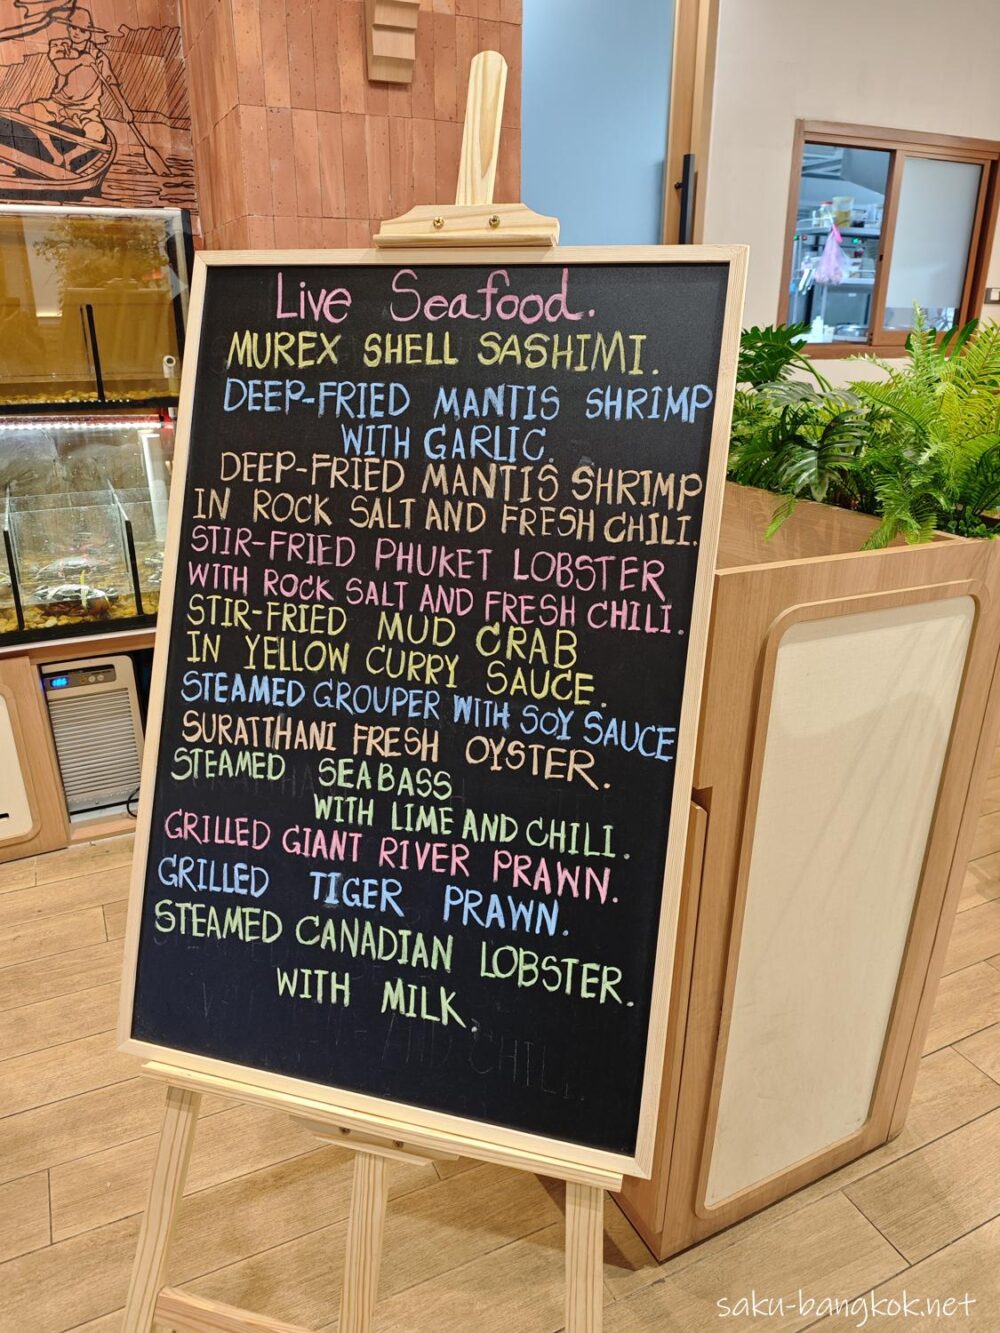 Live Seafood.
MUREX SHELL SASHIMI.
DEEP-FRIED MANTIS SHRIMP
WITH GARLIC.
DEEP-FRIED MANTIS SHRIMP
IN ROCK SALT AND FRESH CHILI.
STIR-FRIED PHUKET LOBSTER
WITH ROCK SALT AND FRESH CHILI.
STIR-FRIED MUD CRAB
IN YELLOW CURRY SAUCE.
STEAMED GROUPER WITH SOY SAUCE
SURATTHANI FRESH OYSTER.
STEAMED SEABASS
WITH LIME AND CHILI.
GRILLED GIANT RIVER PRAWN.
GRILLED TIGER PRAWN.
STEAMED CANADIAN LOBSTER.
WITH MILK.
saku-bangkok.net